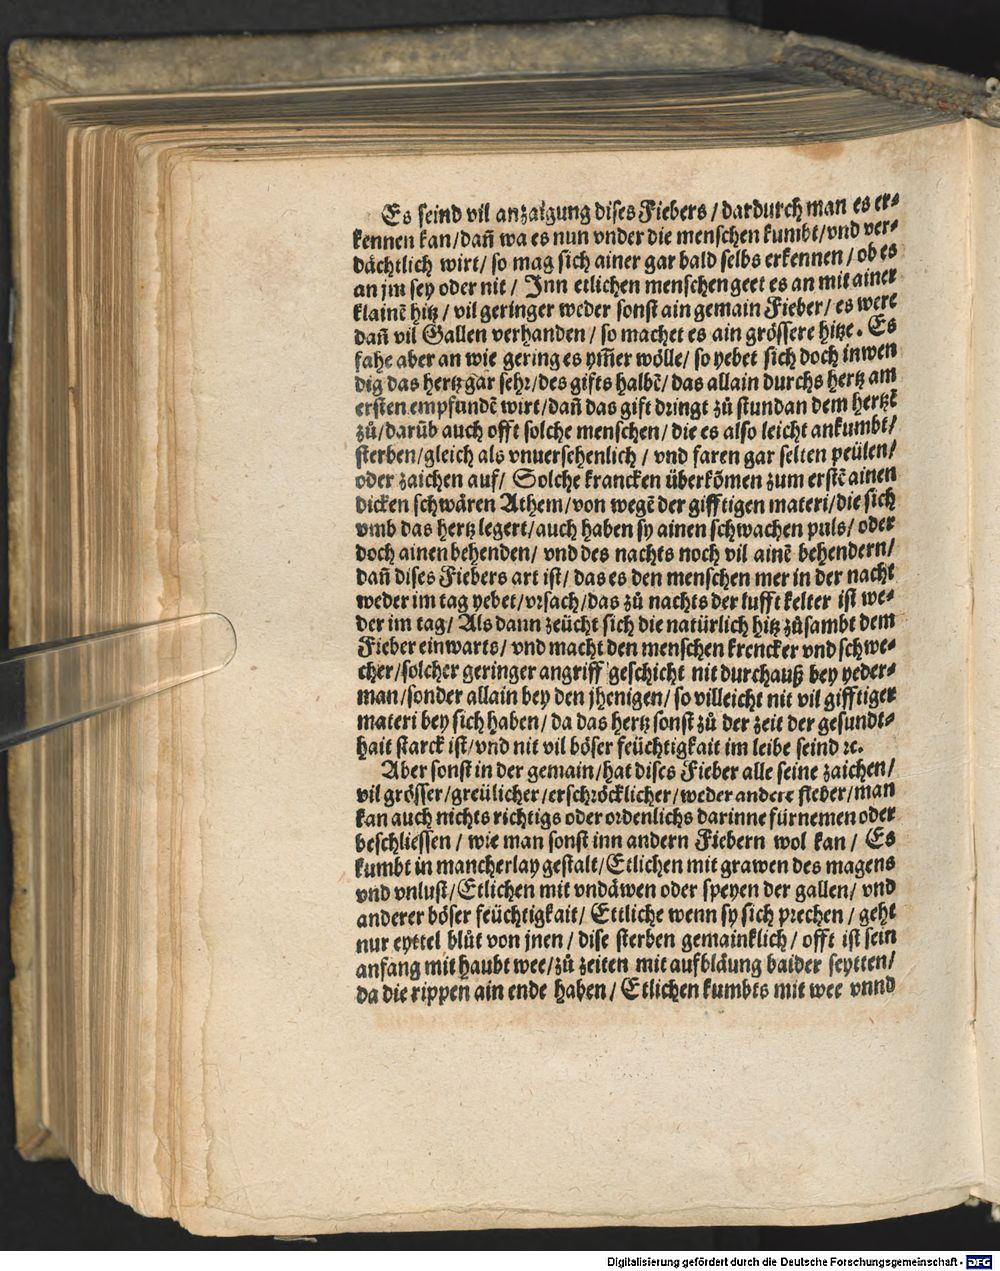 Es seind vil anzaigung dises Fiebers / dardurch man es er-
kennen kan/dañ wa es nun vnder die menschen kumbt/vnd ver-
dächtlich wirt/ so mag sich ainer gar bald selbs erkennen / ob es
an jm sey oder nit / Inn etlichen menschen geet es an mit ainer
klainẽ hitz / vil geringer weder sonst ain gemain Fieber/ es were
dañ vil Gallen verhanden / so machet es ain grössere hitze. Es
fahe aber an wie gering es ym̃er wölle/ so yebet sich doch inwen
dig das hertz gar sehr/des gifts halbẽ/ das allain durchs hertz am
ersten empfundẽ wirt/dañ das gift dringt zů stundan dem hertzẽ
zů/darũb auch offt solche menschen/ die es also leicht ankumbt/
sterben/gleich als vnuersehenlich / vnd faren gar selten peülen/
oder zaichen auf/ Solche krancken überkõmen zum erstẽ ainen
dicken schwären Athem/von wegẽ der gifftigen materi/die sich
vmb das hertz legert/auch haben sy ainen schwachen puls/ oder
doch ainen behenden/ vnd des nachts noch vil ainẽ behendern/
dañ dises Fiebers art ist/ das es den menschen mer in der nacht
weder im tag yebet/vrsach/das zů nachts der lufft kelter ist we-
der im tag/ Als dann zeücht sich die natürlich hitz zůsambt dem
Fieber einwarts/ vnd macht den menschen krencker vnd schwe-
cher/solcher geringer angriff geschicht nit durchauß bey yeder-
man/sonder allain bey den jhenigen/ so villeicht nit vil gifftiger
materi bey sich haben/ da das hertz sonst zů der zeit der gesundt-
hait starck ist/vnd nit vil böser feüchtigkait im leibe seind ꝛc.
Aber sonst in der gemain/hat dises Fieber alle seine zaichen/
vil grösser/greülicher/erschröcklicher/weder andere fieber/man
kan auch nichts richtigs oder ordenlichs darinne fürnemen oder
beschliessen / wie man sonst inn andern Fiebern wol kan / Es
kumbt in mancherlay gestalt/Etlichen mit grawen des magens
vnd vnlust/Etlichen mit vndäwen oder speyen der gallen/ vnd
anderer böser feüchtigkait/ Ettliche wenn sy sich prechen / geht
nur eyttel blůt von jnen / dise sterben gemainklich/ offt ist sein
anfang mit haubt wee/zů zeiten mit aufbläung baider seytten/
da die rippen ain ende haben / Etlichen kumbts mit wee vnnd
Digitalisierung gefördert durch die Deutsche Forschungsgemeinschaft - DFG